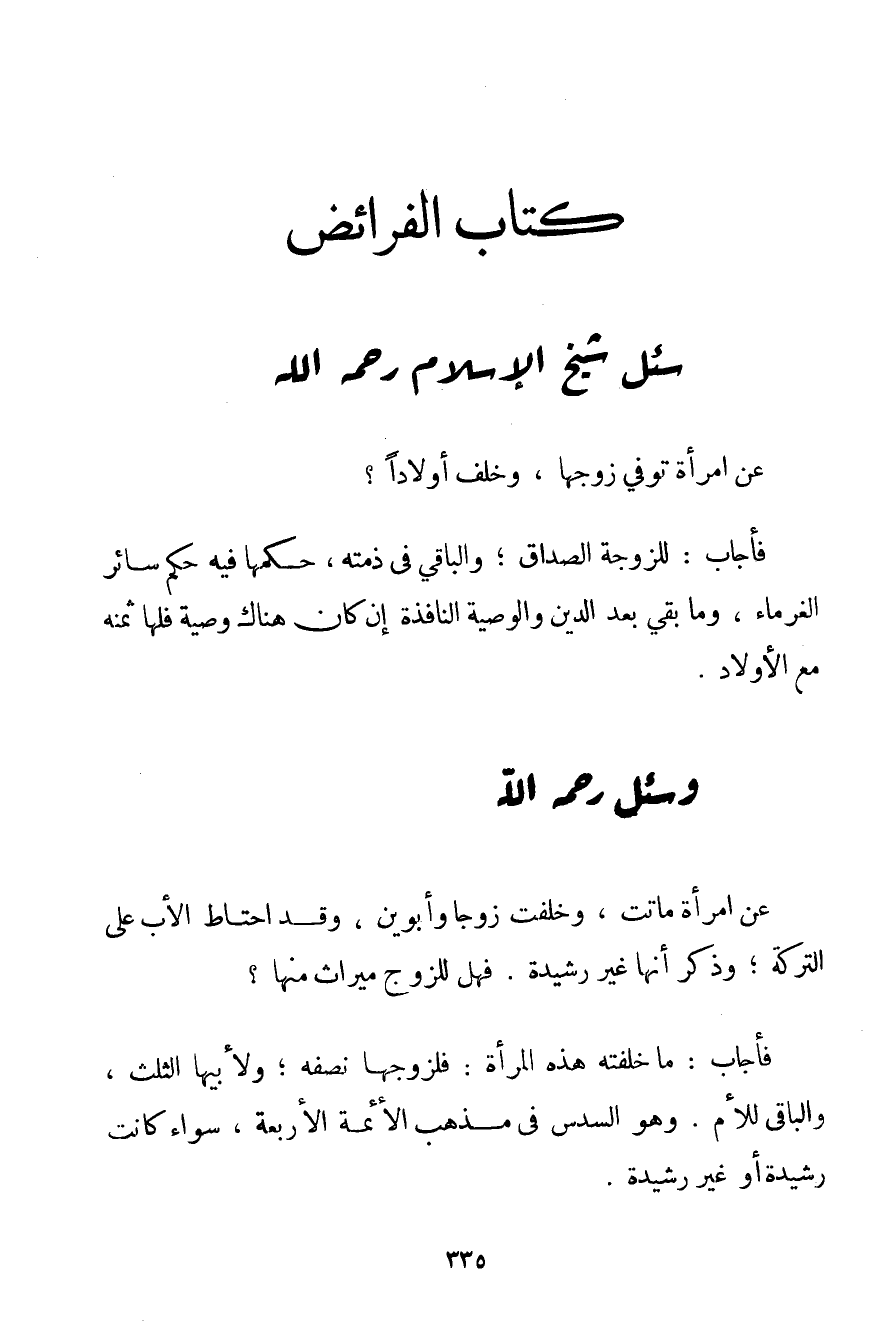 كتاب الفرائض
سئل شيخ الإسلام رحمه الله
عن امرأة توفي زوجها ، وخلف أولاداً ؟
فأجاب : للزوجة الصداق ؛ والباقي في ذمته ، حكمها فيه حكم سائر
الغرماء ، وما بقي بعد الدين والوصية النافذة إن كان هناك وصية فلها ثمنه
مع الأولاد .
وسئل رحمه اللّه
عن امرأة ماتت ، وخلفت زوجا وأبوين ، وقد احتاط الأب على
التركة ؛ وذكر أنها غير رشيدة . فهل للزوج ميراث منها ؟
فأجاب : ما خلفته هذه المرأة : فلزوجها نصفه ؛ ولأبيها الثلث ،
والباقى للأم . وهو السدس فى مذهب الأئمة الأربعة ، سواء كانت
رشيدة أو غير رشيدة .
٣٣٥